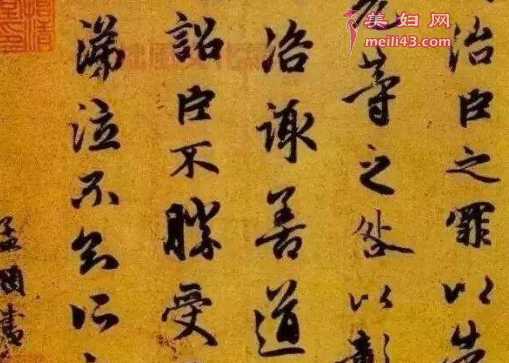 治臣之罪以告
等之咎以彰
諏善道
詔臣不勝受
涕泣不知所
孟頫書
美妇网
meili43.com